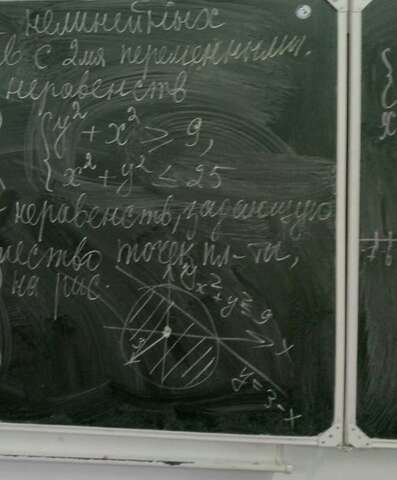 нелинейных
в с 2мя переменными.
неравенств
{ y² + x² ≥ 9,
x² + y² ≤ 25
неравенств, задающую
точек пл-ти,
на рис.
y
x² + y² = 9
3
x
y = 3 - x